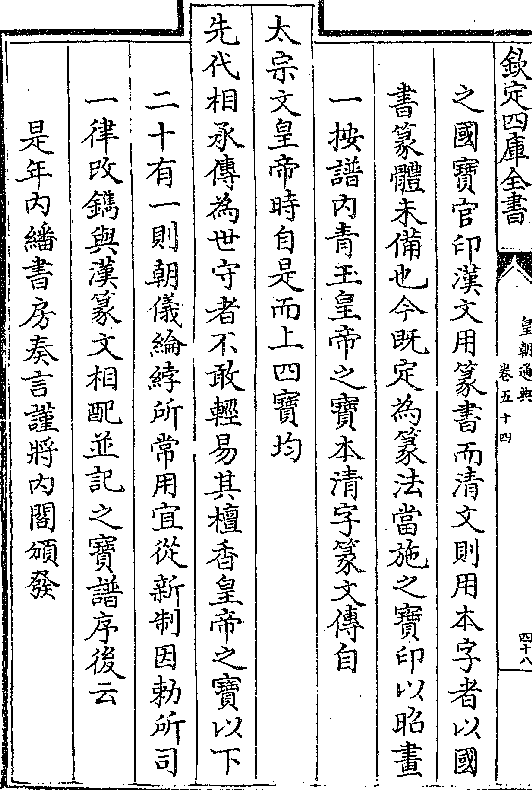 欽定四庫全書
皇朝通典
卷五十四
四十八
之國寶官印漢文用篆書而清文則用本字者以國
書篆體未備也今既定為篆法當施之寶印以昭畫
一按譜内青玉皇帝之寶本清字篆文傳自
太宗文皇帝時自是而上四寶均
先代相承傳為世守者不敢輕易其檀香皇帝之寶以下
二十有一則朝儀綸綍所常用宜從新制因勅所司
一律改鐫與漢篆文相配並記之寶譜序後云
是年内繙書房奏言謹將内閣頒發